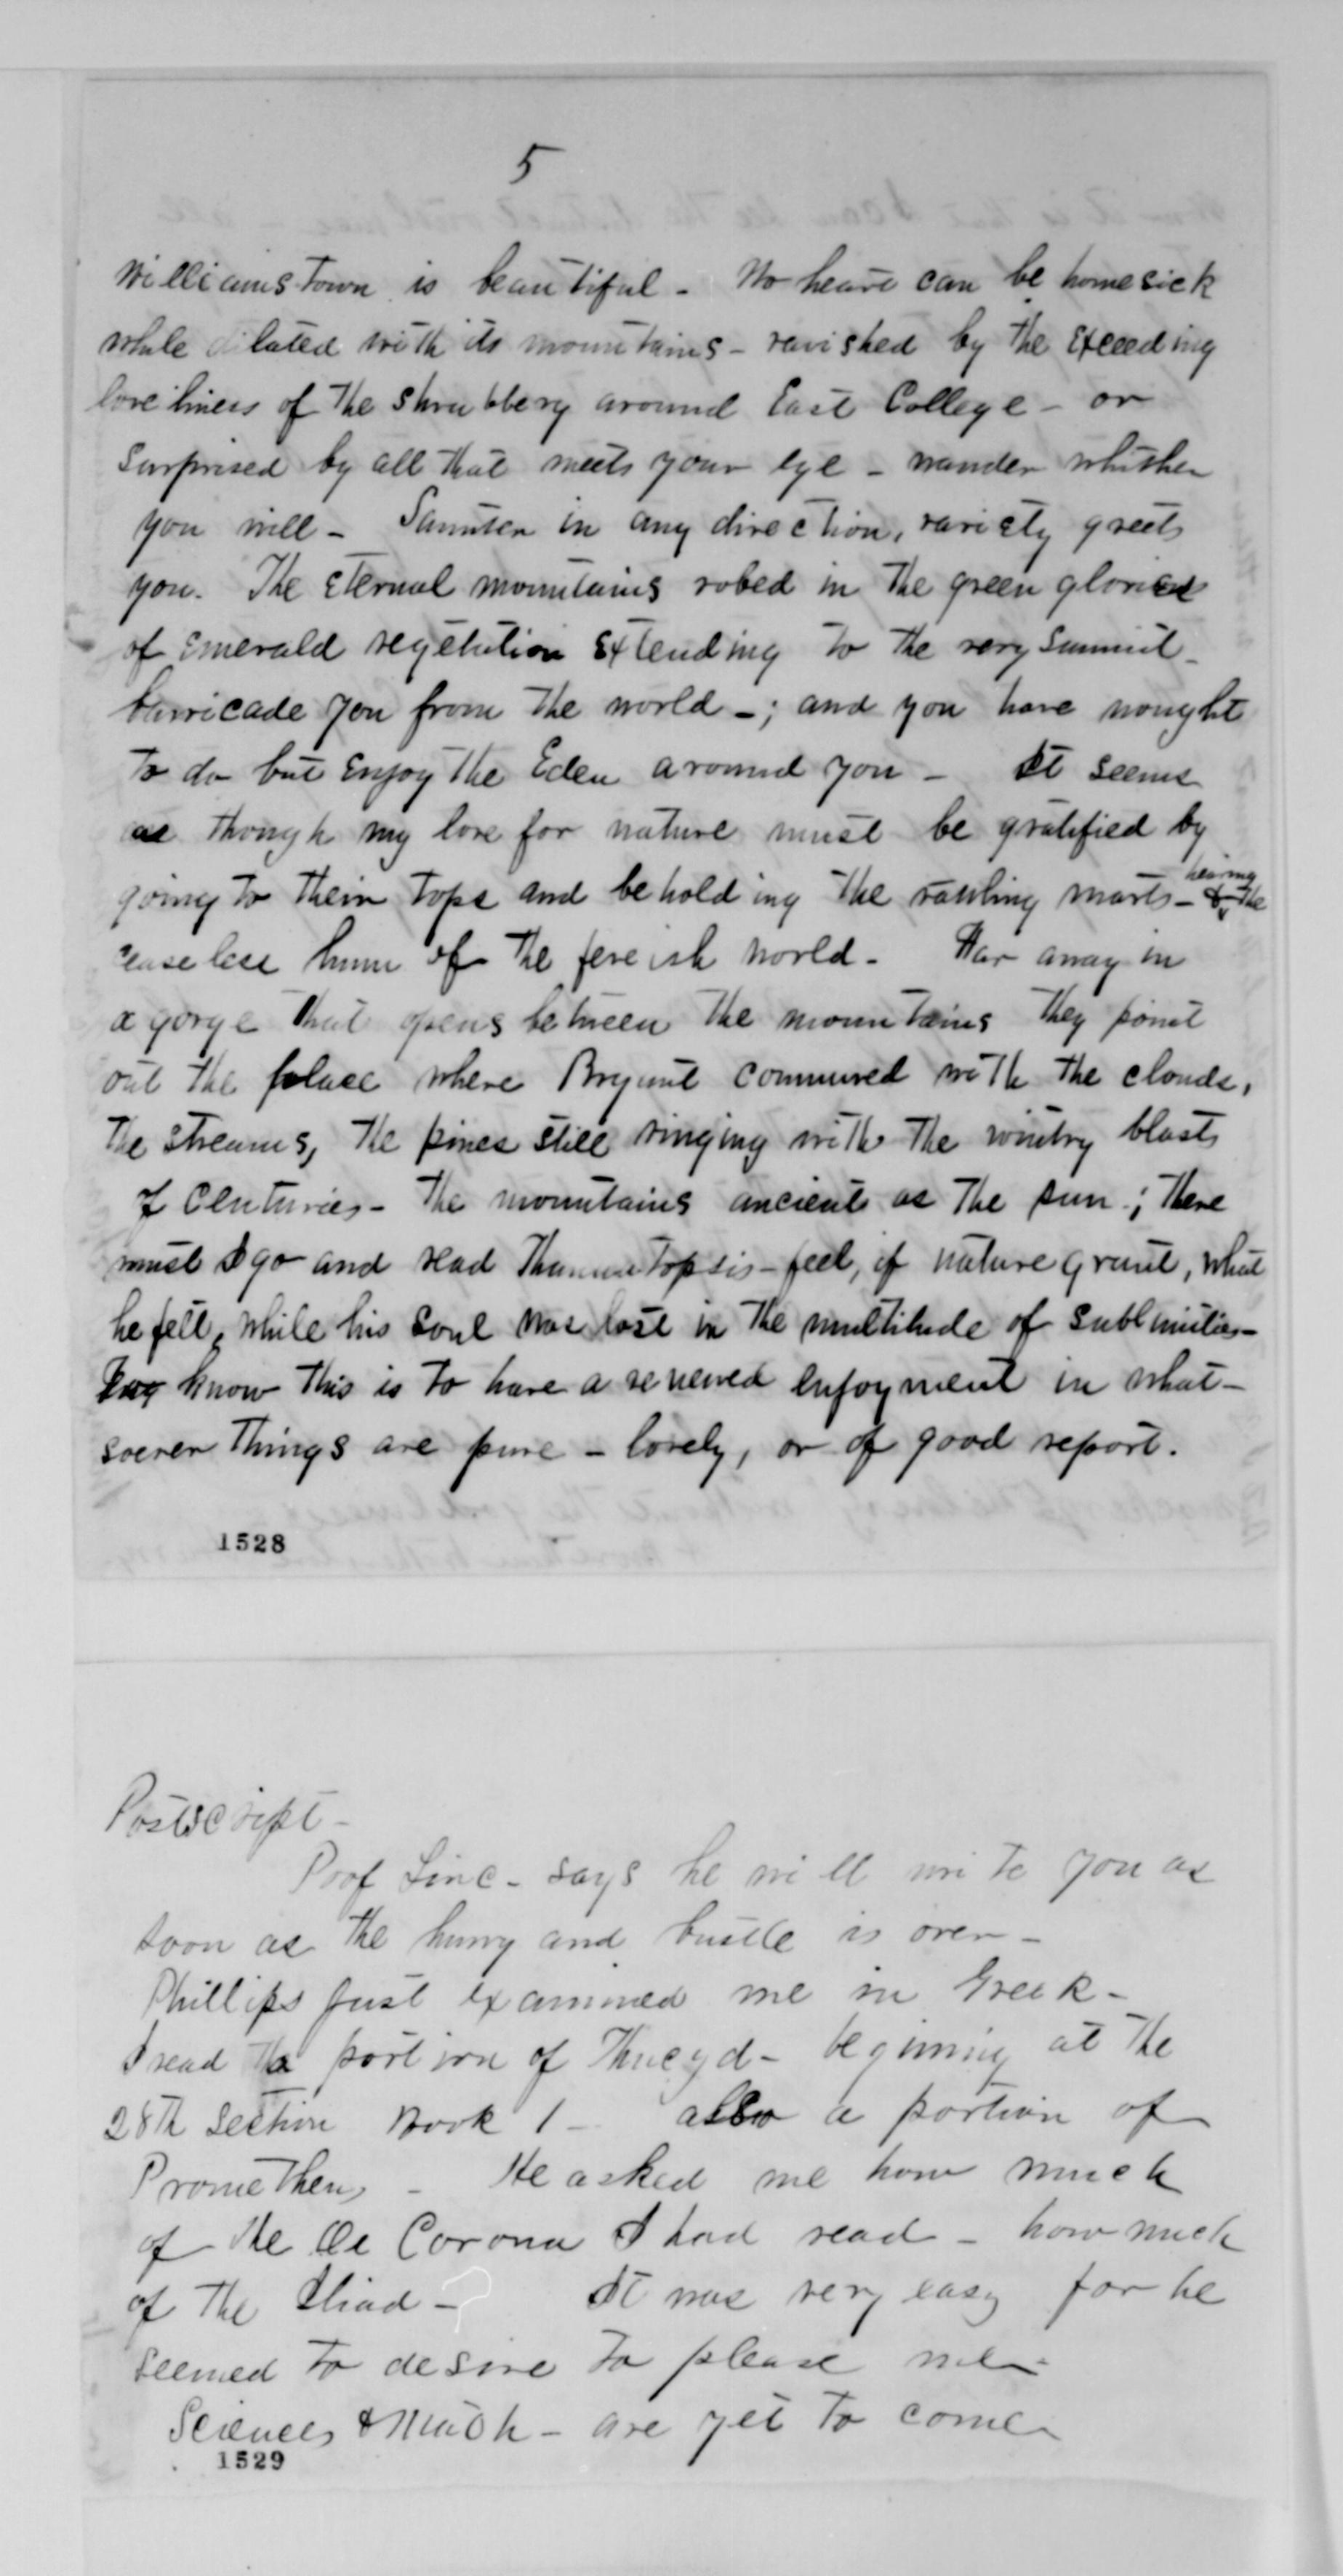 5
Williamstown is beautiful - No heart can be homesick
while dilated with its mountains - ravished by the exceeding
loveliness of the shrubbery around East College - or
surprised by all that meets your eye - wander whither
you will - Saunter in any direction, variety greets
you. The eternal mountains robed in the green glories
of emerald vegetation extending to the very summit -
barricade you from the world - ; and you have nought
to do but enjoy the Eden around you - It seems
as though my love for nature must be gratified by
going to their tops and beholding the rattling marts - & hearing the
ceaseless hum of the feveish world - Far away in
a gorge that opens between the mountains they point
out the place where Bryant communed with the clouds,
the streams, the pines still ringing with the wintry blasts
of centuries - the mountains ancient as the sun ; there
must I go and read Thannatopsis - feel, if nature grant, what
he felt, while his soul was lost in the multitude of sublimities -
know this is to have a renewed enjoyment in what-
soever things are pure - lovely, or of good report.
1528
Postscript -
Prof Linc - says he will write you as
soon as the hurry and bustle is over -
Phillips just examined me in Greek -
I read the portion of Thucyd - begining at the
28th section Book 1 - also a portion of
Prometheus - He asked me how much
of the De Corona I had read - how much
of the Iliad - It was very easy for he
seemed to desire to please me -
Sciences & Math - are yet to come
1529